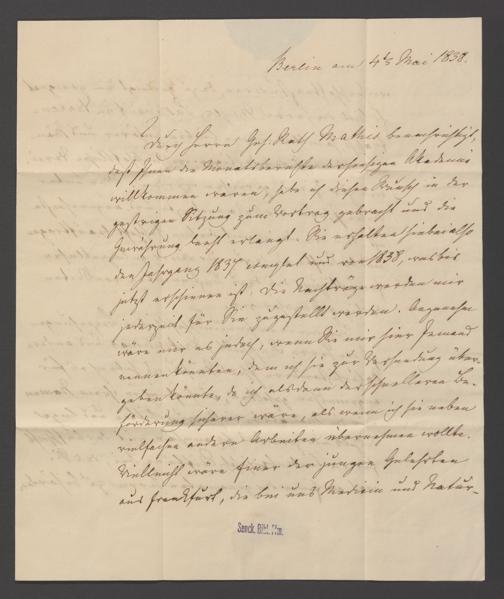 Berlin am 4t Mai 1838.
Durch Herrn Geh. Rath Mathis benachrichtigt,
daß Ihnen die Monatsberichte der hiesigen Akademie
willkommen wären, habe ich diesen Wunsch in der
gestrigen Sitzung zum Vortrag gebracht und die
Gewährung leicht erlangt. Sie erhalten hiebei also
den Jahrgang 1837 complet und von 1838, was bis
jetzt erschienen ist. Die Nachträge werden mir
jederzeit für Sie zugestellt werden. Angenehm
wäre mir es jedoch, wenn Sie mir hier Jemand
nennen könnten, dem ich sie zur Versendung über-
geben könnte, da ich alsdann der schnelleren Be-
förderung sicherer wäre, als wenn ich sie neben
vielfachen andern Arbeiten übernehmen wollte.
Vielleicht wäre Einer der jungen Gelehrten
aus Frankfurt, die bei uns Medicin und Natur-
Senck. Bibl. Ffm.